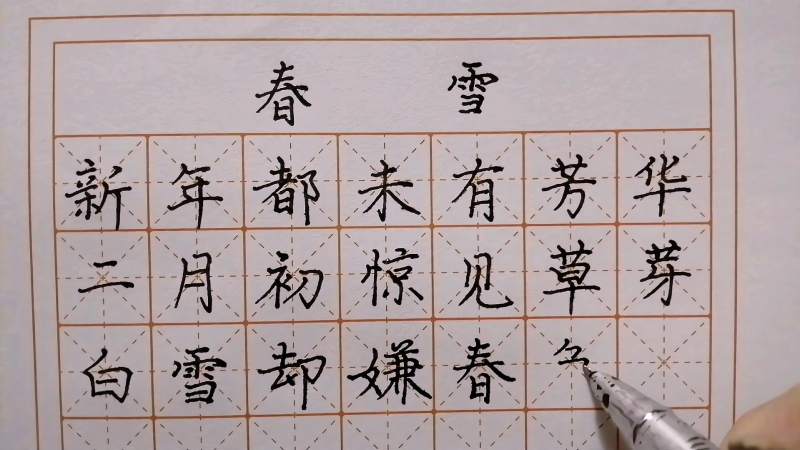 春雪
新年都未有芳华
二月初惊见草芽
白雪却嫌春